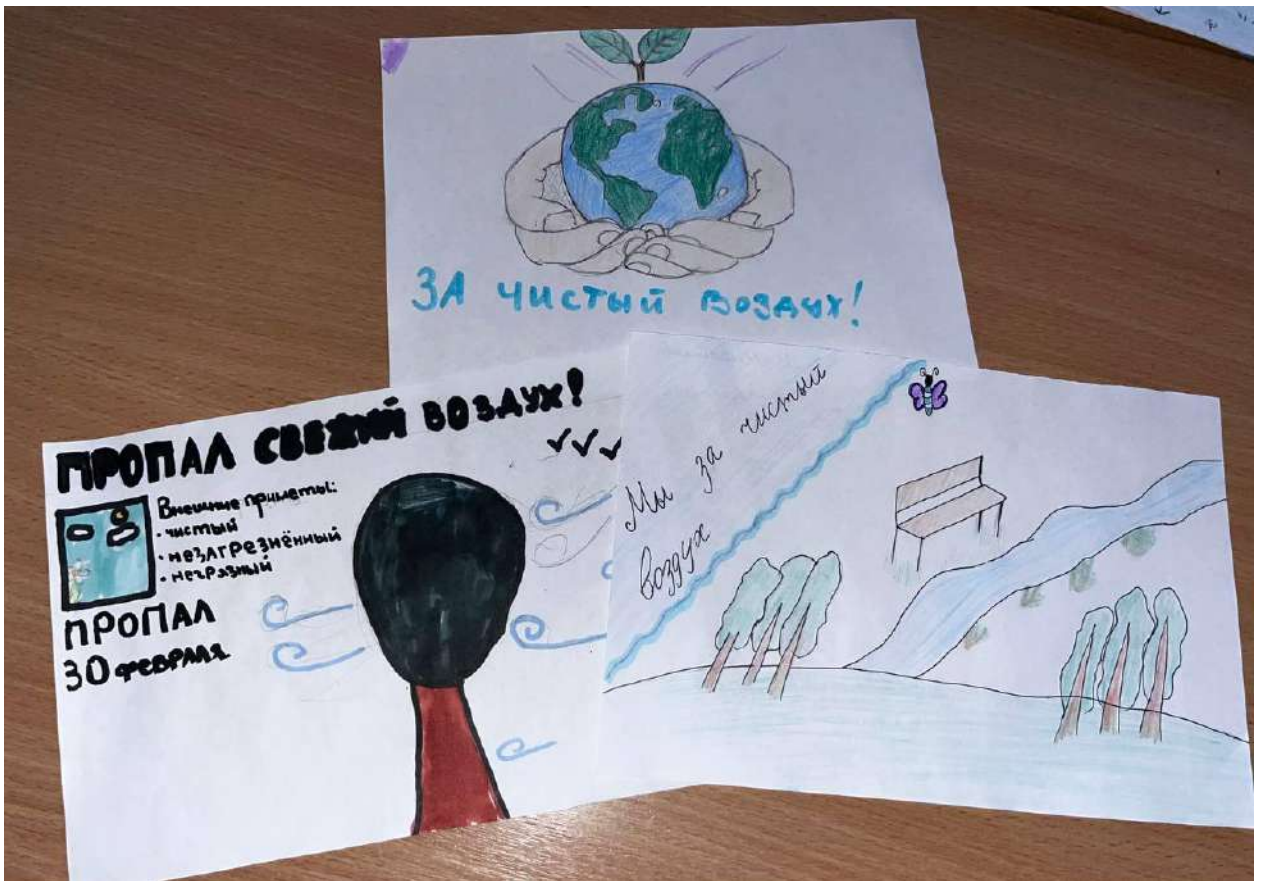 ЗА ЧИСТЫЙ ВОЗДУХ!
ПРОПАЛ СВЕЖИЙ ВОЗДУХ!
Внешние приметы:
• чистый
• незагрезнённый
• негрязный
ПРОПАЛ
30 февраля
Мы за чистый
воздух